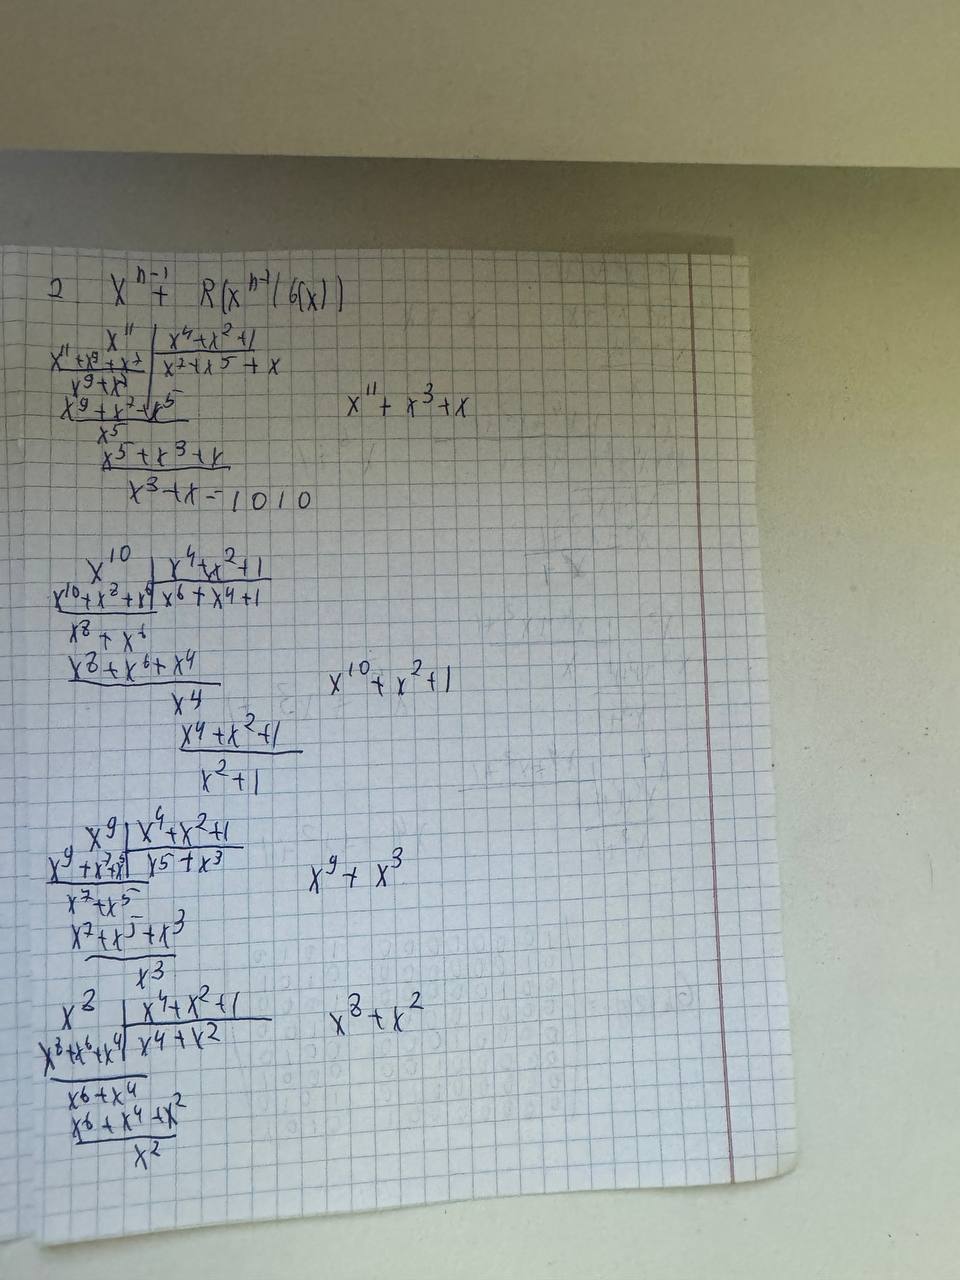 2 xⁿ⁻¹ + R(xⁿ⁻¹/G(x))
x¹¹ | x⁴+x²+1
x¹¹+x⁹+x⁷ | x⁷+x⁵+x
x⁹+x⁷
x⁹+x⁷+x⁵
x¹¹+x³+x
x⁵
x⁵+x³+x
x³+x-1010
x¹⁰ | x⁴+x²+1
x¹⁰+x⁸+x⁶ | x⁶+x⁴+1
x⁸+x⁶
x⁸+x⁶+x⁴
x¹⁰+x²+1
x⁴
x⁴+x²+1
x²+1
x⁹ | x⁴+x²+1
x⁹+x⁷+x⁵ | x⁵+x³
x⁹+x³
x⁷+x⁵
x⁷+x⁵+x³
x³
x⁸ | x⁴+x²+1
x⁸+x²
x⁸+x⁶+x⁴ | x⁴+x²
x⁶+x⁴
x⁶+x⁴+x²
x²